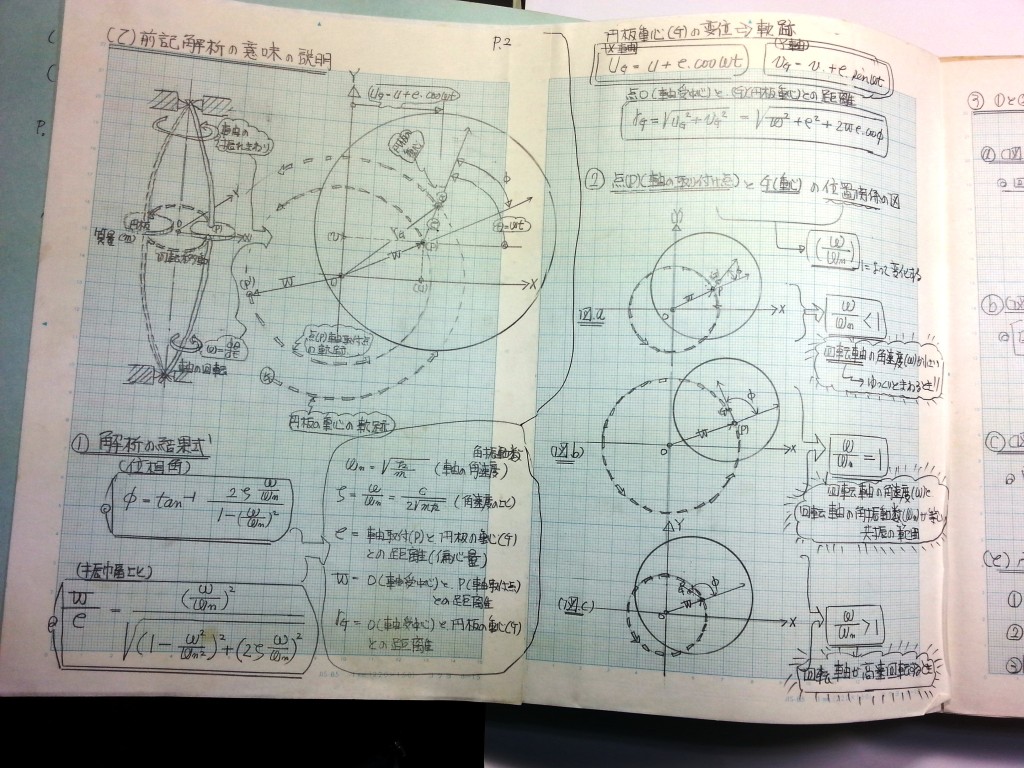 (乙)前記解析の意味の説明
P.2
Y
U_G = u + e.cosωt
軸の
振れまわり
円板
重心
円板
質量(m)
(P)
(P')
O
W
r_G
e
φ
θ=ωt
X
ω=dθ/dt
軸の回転
点(P)軸取付点
の軌跡
円板の重心の軌跡
① 解析の結果式
(位相角)
φ = tan⁻¹ 2ζ ω/ω_n / 1-(ω/ω_n)²
(振巾比)
W/e = (ω/ω_n)² / √(1-ω²/ω_n²)²+(2ζ ω/ω_n)²
角振動数
ω_n = √k/m (軸の角速度)
ζ = ω/ω_n = c/2√mk (角速度の比)
e = 軸取付(P)と円板の重心(G)
との距離(偏心量)
W = O(軸受中心)と P(軸取付点)
との距離
r_G = O(軸受中心)と円板の重心(G)
との距離
円板重心(G)の変位⇒軌跡
X軸
U_G = u + e.cosωt
Y軸
v_G = v + e sinωt
点O(軸受中心)と(G)(円板重心)との距離
r_G = √U_G² + v_G² = √W² + e² + 2We.cosφ
② 点(P)(軸の取り付け点)と G(重心)の位置関係の図
(ω/ω_n)によって変化する
図.a
Y
X
O
ω/ω_n < 1
回転軸の角速度(ω)が小さい
ゆっくりとまわるとき!!
(図b)
X
O
W
(P)
φ
ω/ω_n = 1
回転軸の角速度(ω)と
回転軸の角振動数(ω_n)が等しい
共振の範囲
(図c)
Y
X
O
W
φ
ω/ω_n > 1
回転軸が高速回転するとき
③ ①と②
(a)
(b)
(c)
①
②
③